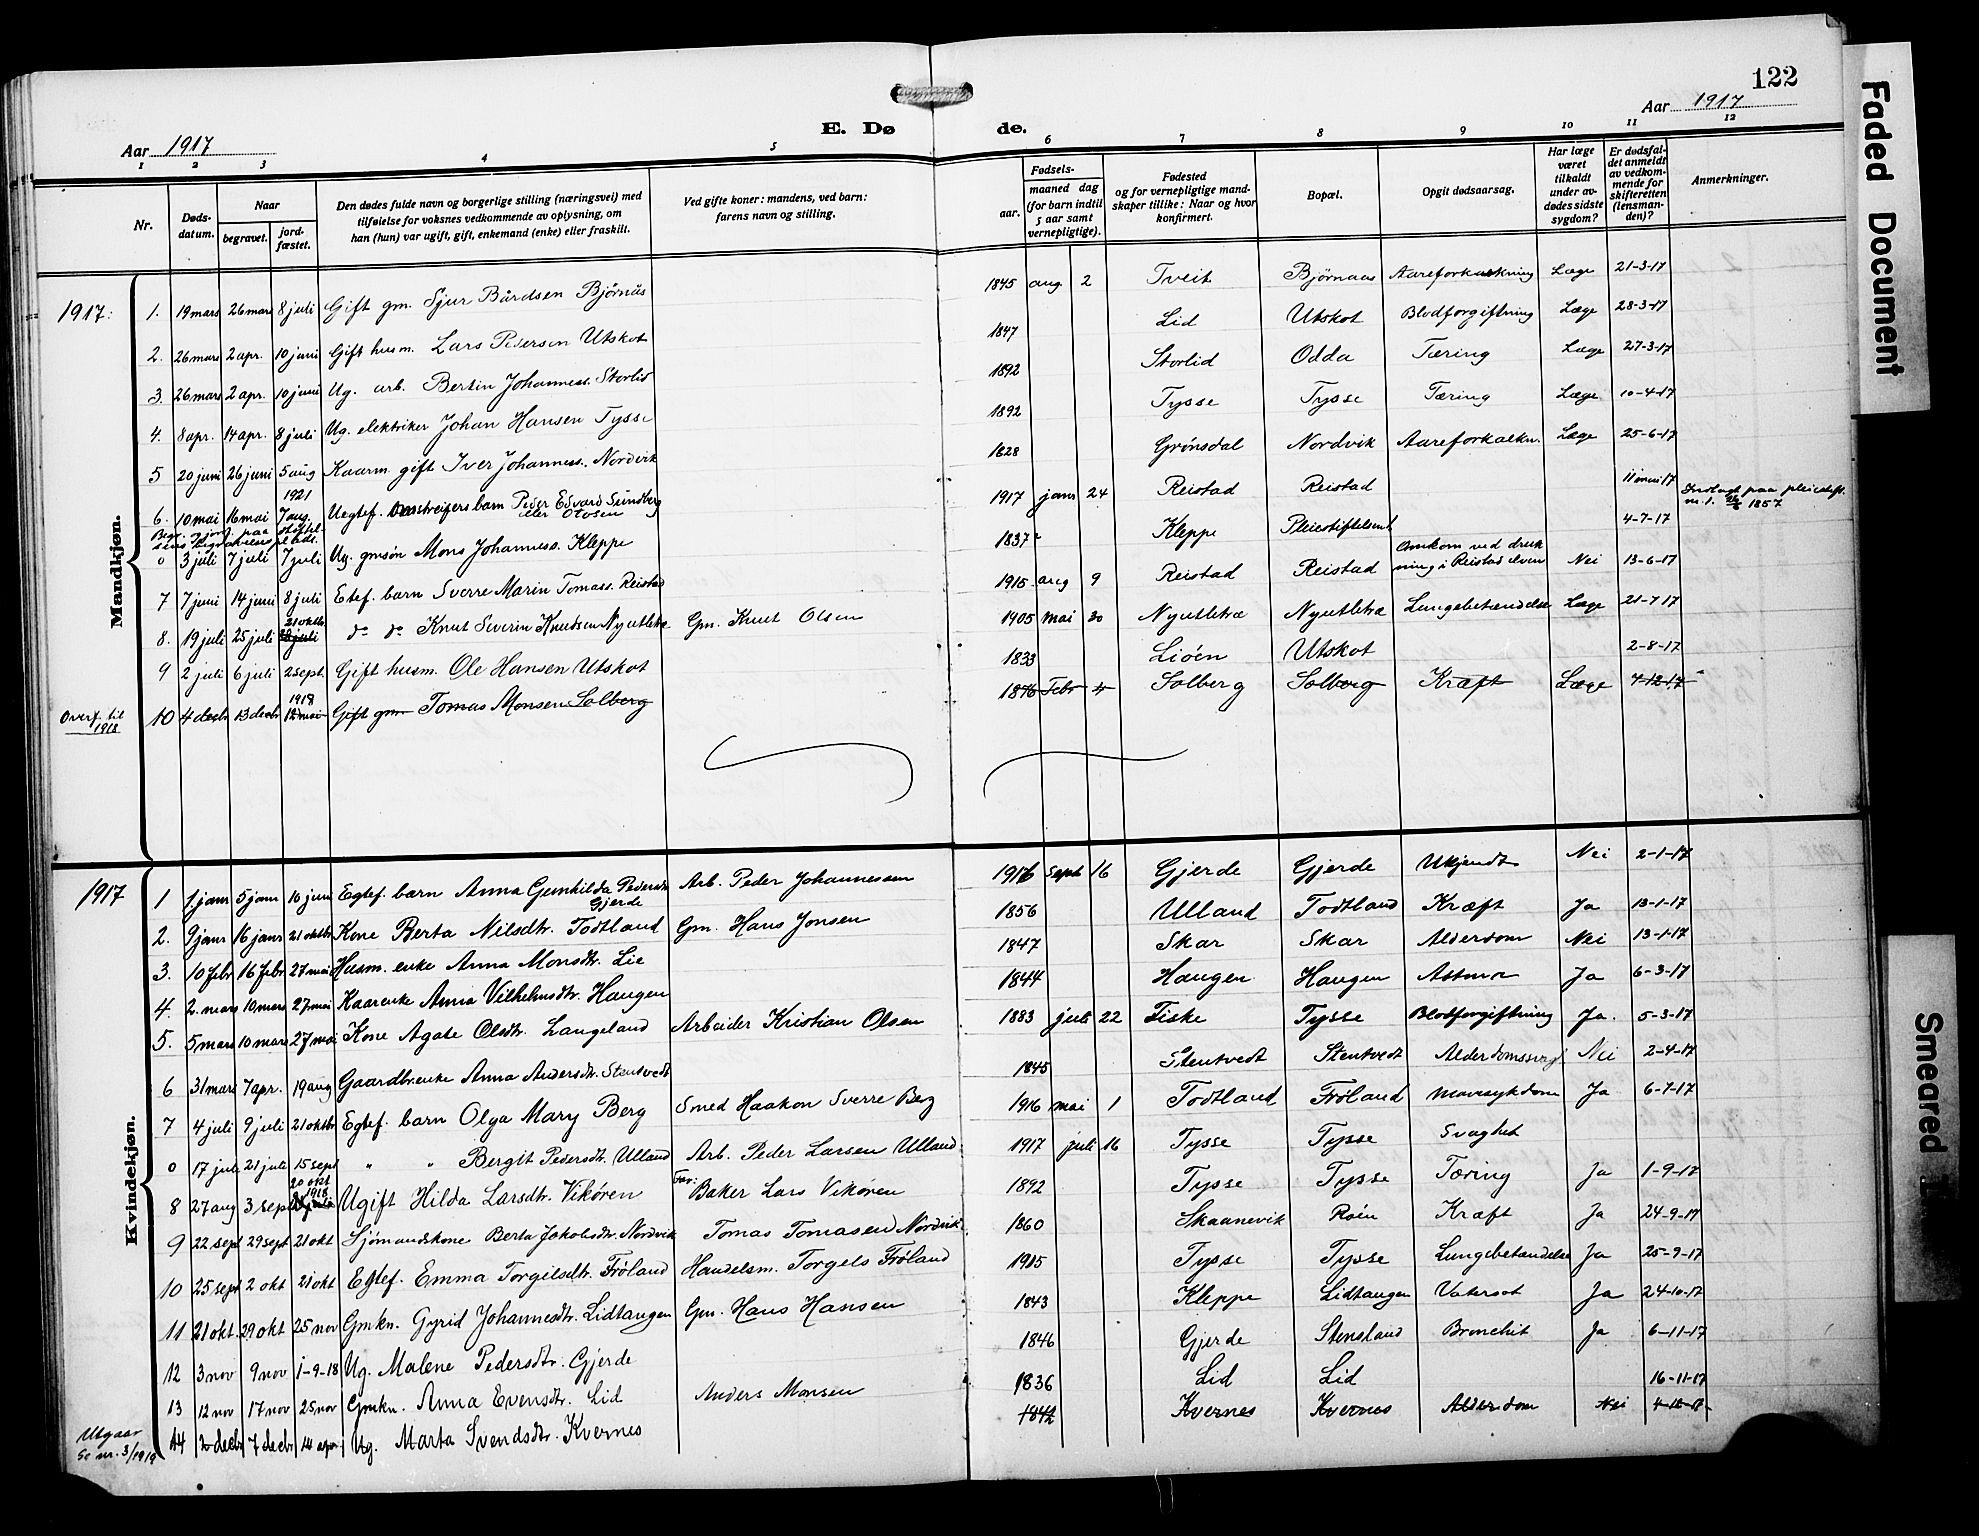 122
Aar 1917
E. Dø de.
Aar 1917
1 2 3 4 5 6 7 8 9 10 11 12
Nr.
Døds-datum.
Naar
begravet.
jord-fæstet.
Den dødes fulde navn og borgerlige stilling (næringsvei) med
tilføielse for voksnes vedkommende av oplysning, om
han (hun) var ugift, gift, enkemand (enke) eller fraskilt.
Ved gifte koner: mandens, ved barn:
farens navn og stilling.
Fødsels-
aar.
maaned dag
(for barn indtil
5 aar samt
vernepligtige).
Fødested
og for vernepligtige mand-
skaper tillike: Naar og hvor
konfirmert.
Bopæl.
Opgit dødsaarsag.
Har læge
været
tilkaldt
under av-
dødes sidste
sygdom?
Er dødsfal-
det anmeldt
av vedkom-
mende for
skifteretten
(lensman-
den)?
Anmerkninger.
Mandkjøn.
1917: 1. 19 mars 26 mars 8 juli Gift gm. Sjur Bårdsen Bjørnås 1845 aug 2 Tveit Bjørnaas Aareforkalkning Læge 21-3-17
2. 26 mars 2 apr. 10 juni Gift husm. Lars Pedersen Utskot 1847 Lid Utskot Blodforgiftning Læge 28-3-17
3. 26 mars 2 apr. 10 juni Ug. arb. Bertin Johanness. Storlid 1892 Storlid Odda Tæring Læge 27-3-17
4. 8 apr. 14 apr. 8 juli Ug. elektriker Johan Hansen Tysse 1892 Tysse Tysse Tæring Læge 10-4-17
5 20 juni 26 juni 5 aug Kaarm. gift Iver Johanness. Nordvik 1828 Grønsdal Nordvik Aareforkalkn. Læge 25-6-17
6. 10 mai 16 mai 1921 7 aug. Uegtef. Omstreifers barn Peder Edvard Sundberg eller Olvsen 1917 janr 24 Reistad Reistad 11 mai 17
0 3 juli 7 juli 7 juli Ug. gmsøn Mons Johanness. Kleppe 1837 Kleppe Pleiestiftelsen 4-7-17 Indlagt paa pleiestift. nr. 1. 1857
7 7 juni 14 juni 8 juli Egtef. barn Sverre Marin Tomass. Reistad 1915 aug 9 Reistad Reistad Omkom ved druk ning i Reistad elven Nei 13-6-17
8. 19 juli 25 juli 21 oktb. 28 juli do do Knut Severin Knudsen Nyutletræ Gm. Knut Olsen 1905 mai 30 Nyutletræ Nyutletræ Lungebetændelse Læge 21-7-17
9 2 juli 6 juli 2 sept. Gift husm. Ole Hansen Utskot 1833 Liöen Utskot 2-8-17
Overf. til 1918 10 4 decbr 13 decbr 1918 12 mai Gift gm. Tomas Monsen Solberg 1876 Febr 4 Solberg Solberg Kræft Læge 4-12-17
Kvindekjøn.
1917 1 1. janr 5 janr 10 juni Egtef. barn Anna Gunhilda Pedersdtr Gjerde Arb. Peder Johannessen 1916 sept 16 Gjerde Gjerde Ukjendt Nei 2-1-17
2. 9 janr 16 janr 21 oktbr Kone Berta Nilsdtr. Todtland Gm. Hans Jonsen 1856 Ulland Todtland Kræft Ja 13-1-17
3. 10 febr 16 febr 27 mai Husm. enke Anna Monsdtr. Lie 1847 Skar Skar Alderdom Nei 13-1-17
4. 2. mars 10 mars 27 mai Kaarenke Anna Vilhelmsdtr. Haugen 1844 Haugen Haugen Astma Ja 6-3-17
5. 5 mars 10 mars 27 mai Kone Agate Olsdtr. Langeland Arbeider Kristian Olsen 1883 juli 22 Fiske Tysse Blodforgiftning Ja. 5-3-17
6 31 mars 7 apr. 19 aug Gaardbr.enke Anna Andersdtr. Stentvedt 1845 Stentvedt Stentvedt Alderdomssvagh. Nei 2-4-17
7 4 juli 9 juli 21 oktbr Egtef. barn Olga Mary Berg Smed Haakon Sverre Berg 1916 mai 1 Todtland Frøland Mavesykdom Ja 6-7-17
0 17 juli 21 juli 15 sept " " Bergit Pedersdtr. Ulland Arb. Peder Larsen Ulland. 1917 juli 16 Tysse Tysse Svaghet
8 27 aug 3 sept 20 okt 1918 Ugift Hilda Larsdtr. Vikören Far: Baker Lars Vikören 1892 Tysse Tysse Tæring Ja 1-9-17
9 22 sept 29 sept 21 okt Sjömandskone Berta Jakobsdtr. Nordvik Tomas Tomasen Nordvik 1860 Skaanevik Roén Kræft Ja 24-9-17
10 25 sept 2 okt 21 okt Egtef. Emma Torgilsdtr. Frøland Handelsm. Torgels Frøland 1915 Tysse Tysse Lungebetændelse Ja 25-9-17
11 21 okt. 29 okt 25 nov Gmkn. Gyrid Johannesdtr. Lidtaugen Gm. Hans Hansen 1843 Kleppe Lidtaugen Vatersot Ja 24-10-17
12 3 nov 9 nov 1-9-18 Ug. Malene Pedersdtr. Gjerde 1846 Gjerde Stensland Bronchit Ja 6-11-17
13 12 nov 17 nov 25 nov Gmkn. Anna Evensdtr. Lid Anders Monsen 1836 Lid Lid 16-11-17
Utgaar Se nr. 3/1919 14 2 decbr 7 decbr 14 apr Ug. Marta Svendsdtr. Kvernes 1842 Kvernes Kvernes Alderdom Nei 4-12-17
Faded Document
Smeared